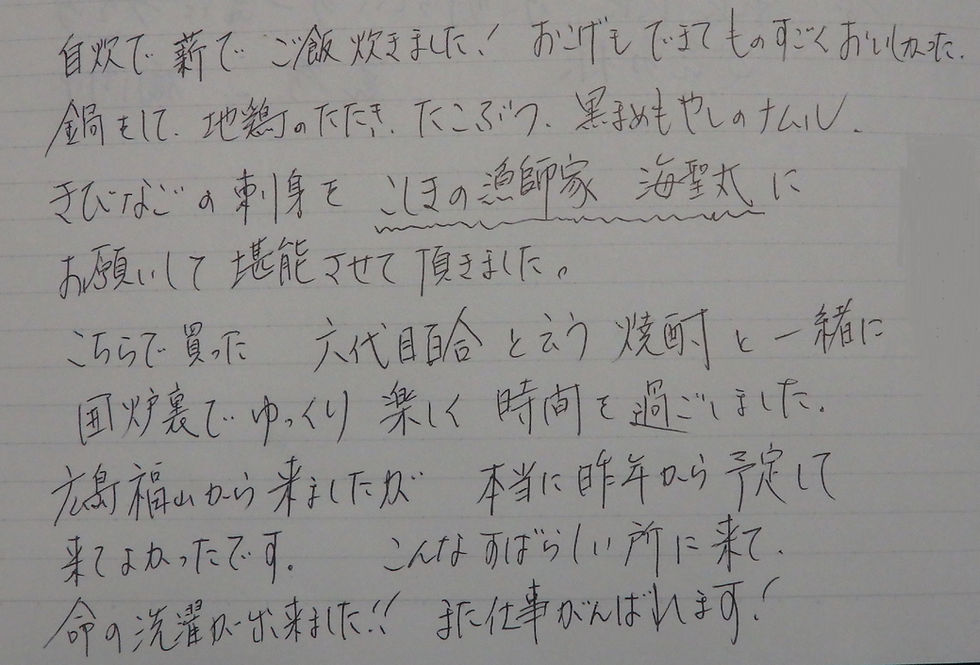 自炊で 薪で ご飯 炊きました! おこげも できて ものすごく おいしかった.
鍋をして、地鶏のたたき、たこぶつ、黒まめもやしのナムル、
きびなごの刺身を こしきの漁師家 海聖丸に
お願いして 堪能させて 頂きました。
こちらで買った 六代目百合 と云う 焼酎と 一緒に
囲炉裏で ゆっくり 楽しく 時間を 過ごしました.
広島福山から 来ましたが 本当に昨年から 予定して
来てよかったです. こんなすばらしい所に来て、
命の洗濯が出来ました!! また仕事がんばれます!